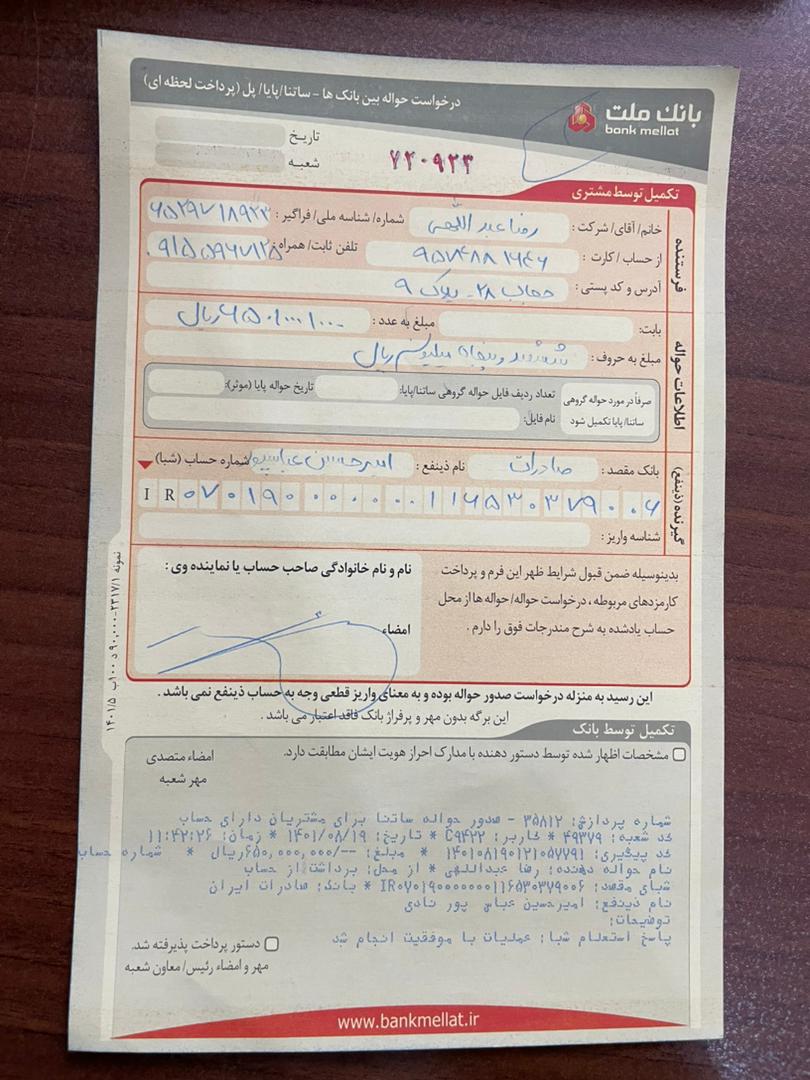 درخواست حواله بین بانک ها - ساتنا/پایا/ پل (پرداخت لحظه ای)
بانک ملت
bank mellat
تاریخ
شعبه
۷۲۰۹۲۳
تکمیل توسط مشتری
فرستنده
خانم/ آقای/ شرکت: رضا عبداللهی شماره/ شناسه ملی/ فراگیر:
از حساب/ کارت: تلفن ثابت/ همراه:
آدرس و کد پستی: حجاب ۲۸ - پلاک ۹
اطلاعات حواله
بابت: مبلغ به عدد: ۶۵۰/۰۰۰/۰۰۰ ریال
مبلغ به حروف: ششصد و پنجاه میلیون ریال
صرفاً در مورد حواله گروهی ساتنا/ پایا تکمیل شود
تعداد ردیف فایل حواله گروهی ساتنا/پایا: تاریخ حواله پایا (موثر):
نام فایل:
گیرنده (ذینفع)
بانک مقصد: صادرات نام ذینفع: امیرحسین عباسپور شماره حساب (شبا)
IR ۰۷۰۱۹۰۰۰۰۰۰۰۰۱۱۶۵۳۰۳۷۹۰۰۶
شناسه واریز:
بدینوسیله ضمن قبول شرایط ظهر این فرم و پرداخت
کارمزدهای مربوطه، درخواست حواله/ حواله ها از محل
حساب یادشده به شرح مندرجات فوق را دارم.
نام و نام خانوادگی صاحب حساب یا نماینده وی:
امضاء
این رسید به منزله درخواست صدور حواله بوده و به معنای واریز قطعی وجه به حساب ذینفع نمی باشد.
این برگه بدون مهر و پرفراژ بانک فاقد اعتبار می باشد.
تکمیل توسط بانک
مشخصات اظهار شده توسط دستور دهنده با مدارک احراز هویت ایشان مطابقت دارد.
امضاء متصدی
مهر شعبه
شماره پردازش: ۳۵۸۱۲ - صدور حواله ساتنا برای مشتریان دارای حساب
کد شعبه: ۴۹۳۷۹ * کاربر: C۹۴۲۲ * تاریخ: ۱۴۰۱/۰۸/۱۹ * زمان: ۱۱:۴۲:۲۶
کد پیگیری: ۱۴۰۱۰۸۱۹۰۱۲۱۰۵۷۷۹۱ * مبلغ: --/۶۵۰,۰۰۰,۰۰۰ریال * شماره حساب
نام حواله دهنده: رضا عبداللهی * از محل: برداشت از حساب
شبای مقصد: IR۰۷۰۱۹۰۰۰۰۰۰۰۰۱۱۶۵۳۰۳۷۹۰۰۶ * بانک: صادرات ایران
نام ذینفع: امیرحسین عباس پور نادی
توضیحات:
پاسخ استعلام شبا: عملیات با موفقیت انجام شد
دستور پرداخت پذیرفته شد.
مهر و امضاء رئیس/ معاون شعبه
www.bankmellat.ir